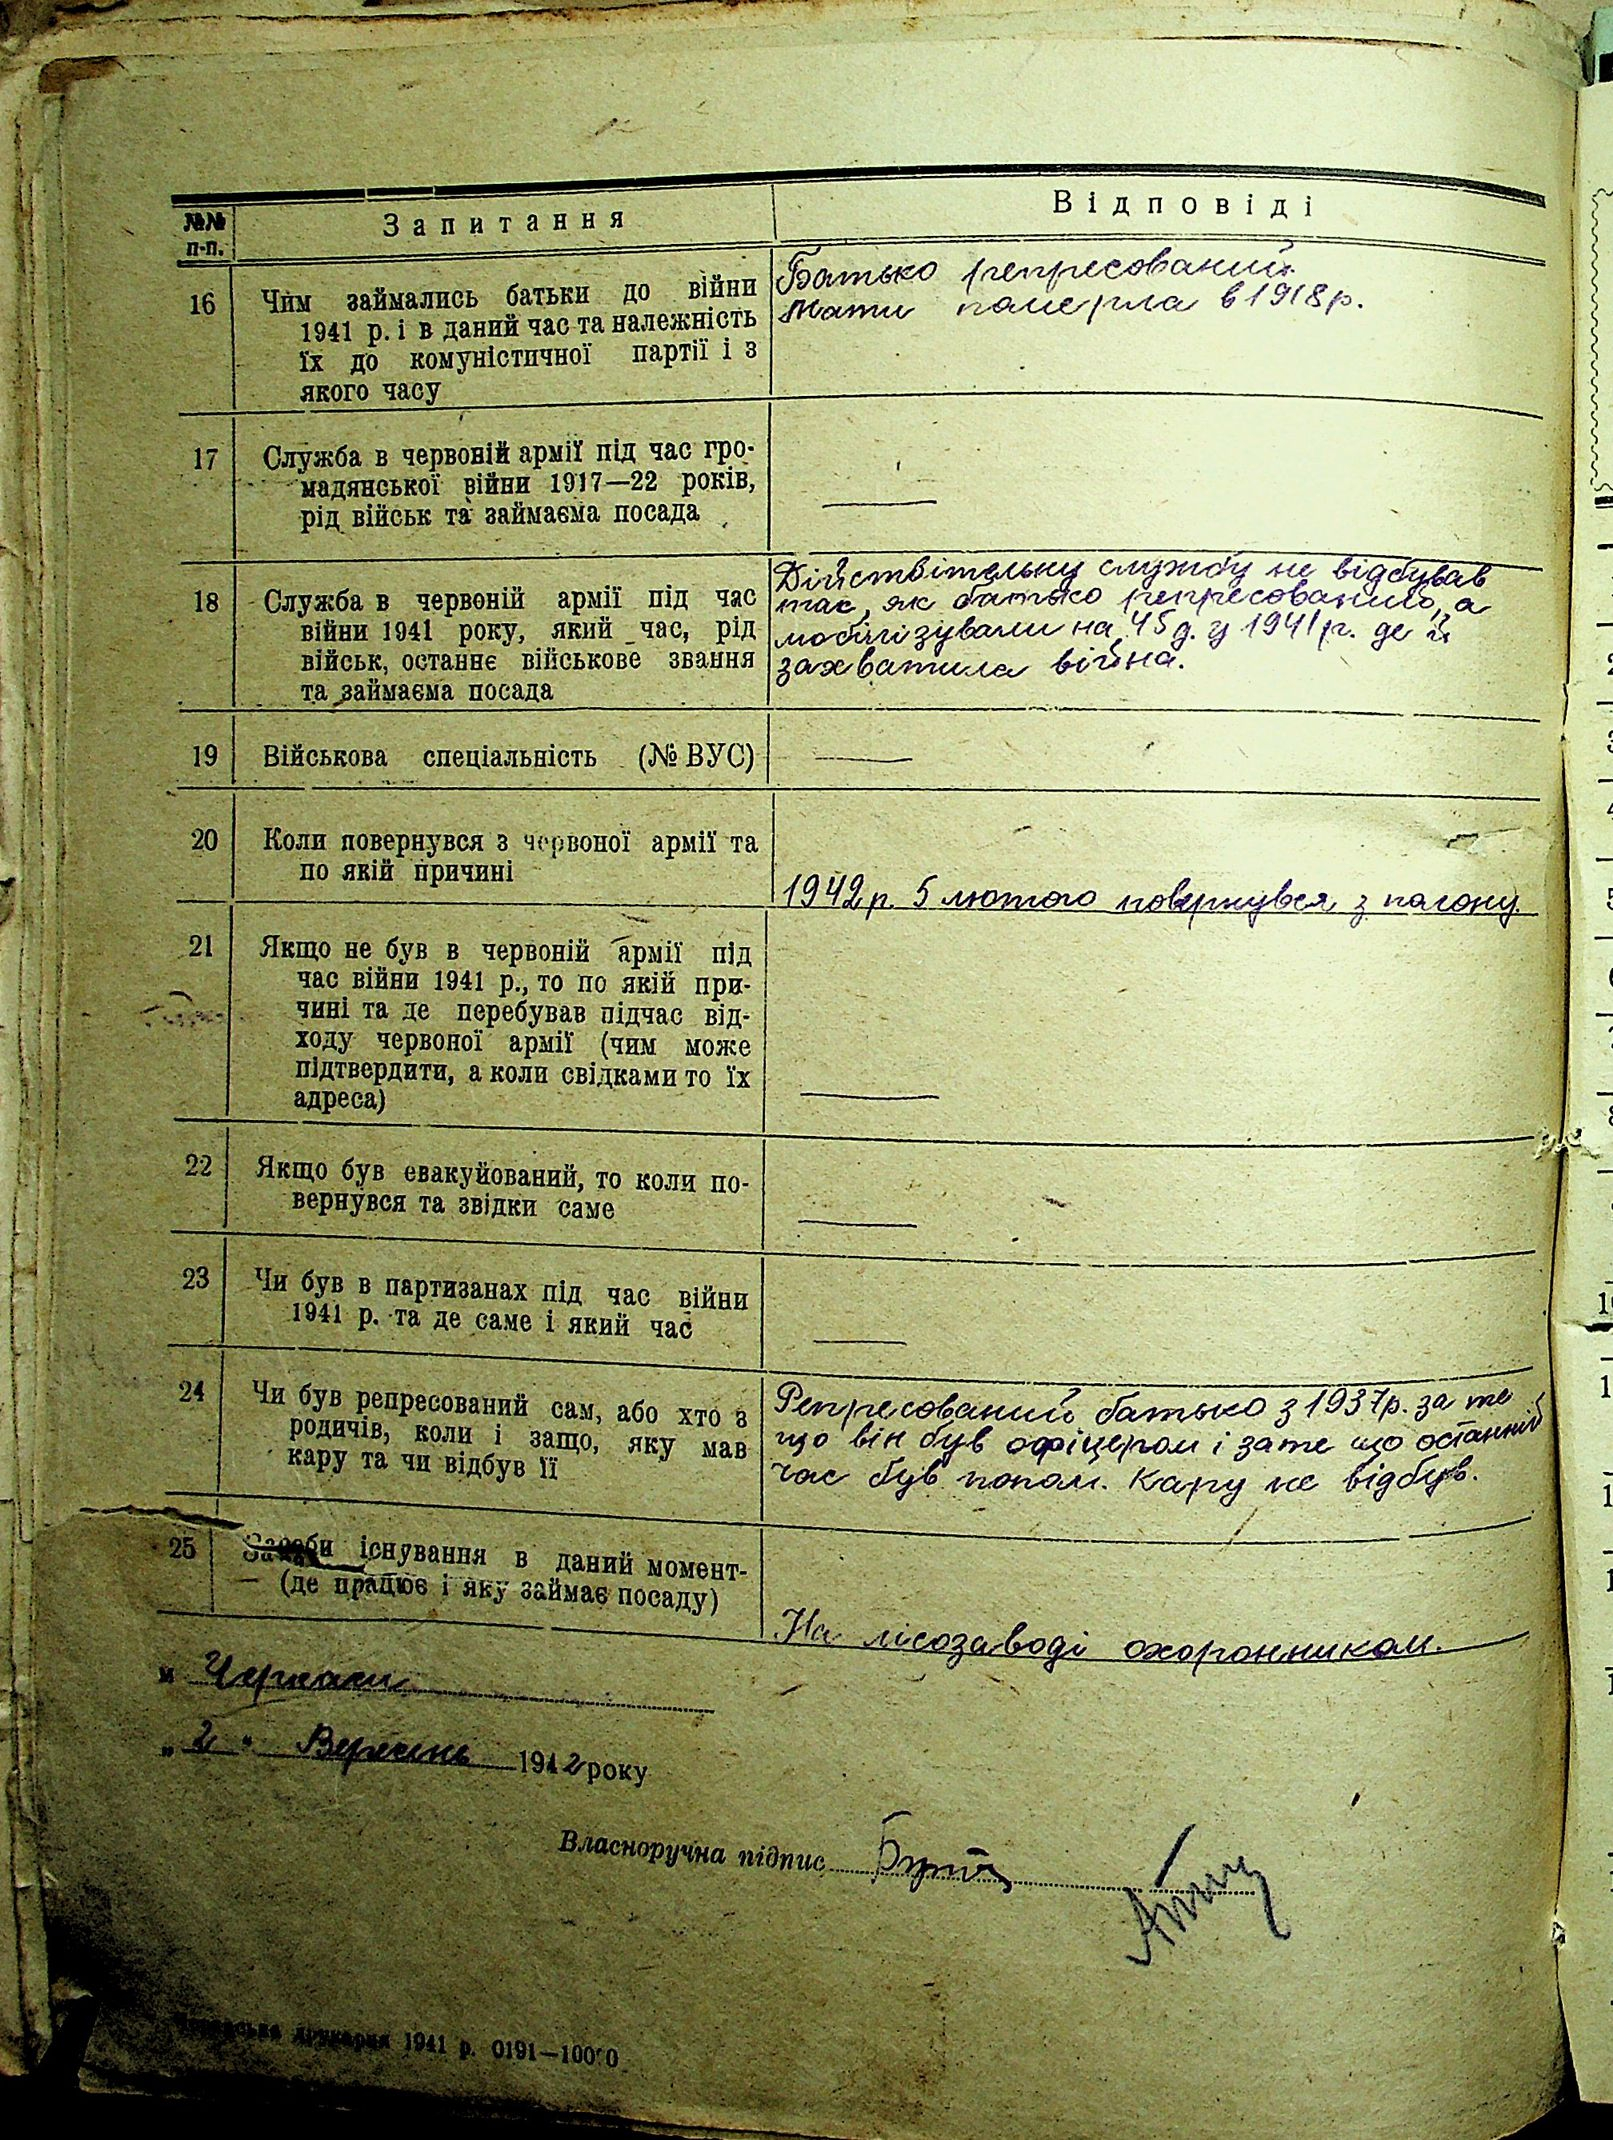 №№ п-п.
Запитання
Відповіді
16
Чим займались батьки до війни
1941 р. і в даний час та належність
їх до комуністичної партії і з
якого часу
Батько репресований.
Мати померла в 1918 р.
17
Служба в червоній армії під час гро-
мадянської війни 1917—22 років,
рід військ та займаєма посада
18
Служба в червоній армії під час
війни 1941 року, який час, рід
військ, останнє військове звання
та займаєма посада
Дійствітельну службу не відбував
так, як батько репресований, а
мобілізували на 45 д. у 1941 р. де й
захватила війна.
19
Військова спеціальність (№ ВУС)
20
Коли повернувся з червоної армії та
по якій причині
1942 р. 5 лютого повернувся з полону.
21
Якщо не був в червоній армії під
час війни 1941 р., то по якій при-
чині та де перебував підчас від-
ходу червоної армії (чим може
підтвердити, а коли свідками то їх
адреса)
22
Якщо був евакуйований, то коли по-
вернувся та звідки саме
23
Чи був в партизанах під час війни
1941 р. та де саме і який час
24
Чи був репресований сам, або хто з
родичів, коли і защо, яку мав
кару та чи відбув її
Репресований батько з 1937 р. за те
що він був офіцером і зате що останній
час був попом. Кару не відбув.
25
Засоби існування в даний момент-
— (де працює і яку займає посаду)
На лісозаводі охоронником.
м Черкаси
„ 2 " Вересень 1942 року
Власноручна підпис
друкарня 1941 р. 0191—10000